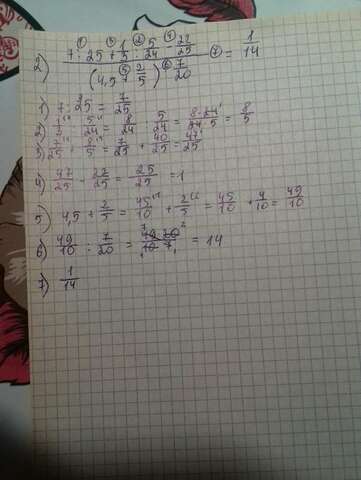 ① ③ ② ④
2) (7 : 25 + 1/3 : 5/24 - 22/25) / ((4,5 + ⑤ 2/5) : ⑥ 7/20) ⑦ = 1/14
1) 7 : 25 = 7/25
2) 1/3 : 5/24 = 8/24 : 5/24 = 8·24/24·5 = 8/5
3) 7/25 + 8/5 = 7/25 + 40/25 = 47/25
4) 47/25 - 22/25 = 25/25 = 1
5) 4,5 + 2/5 = 45/10 + 2/5 = 45/10 + 4/10 = 49/10
6) 49/10 : 7/20 = 49·20/10·7 = 14
7) 1/14